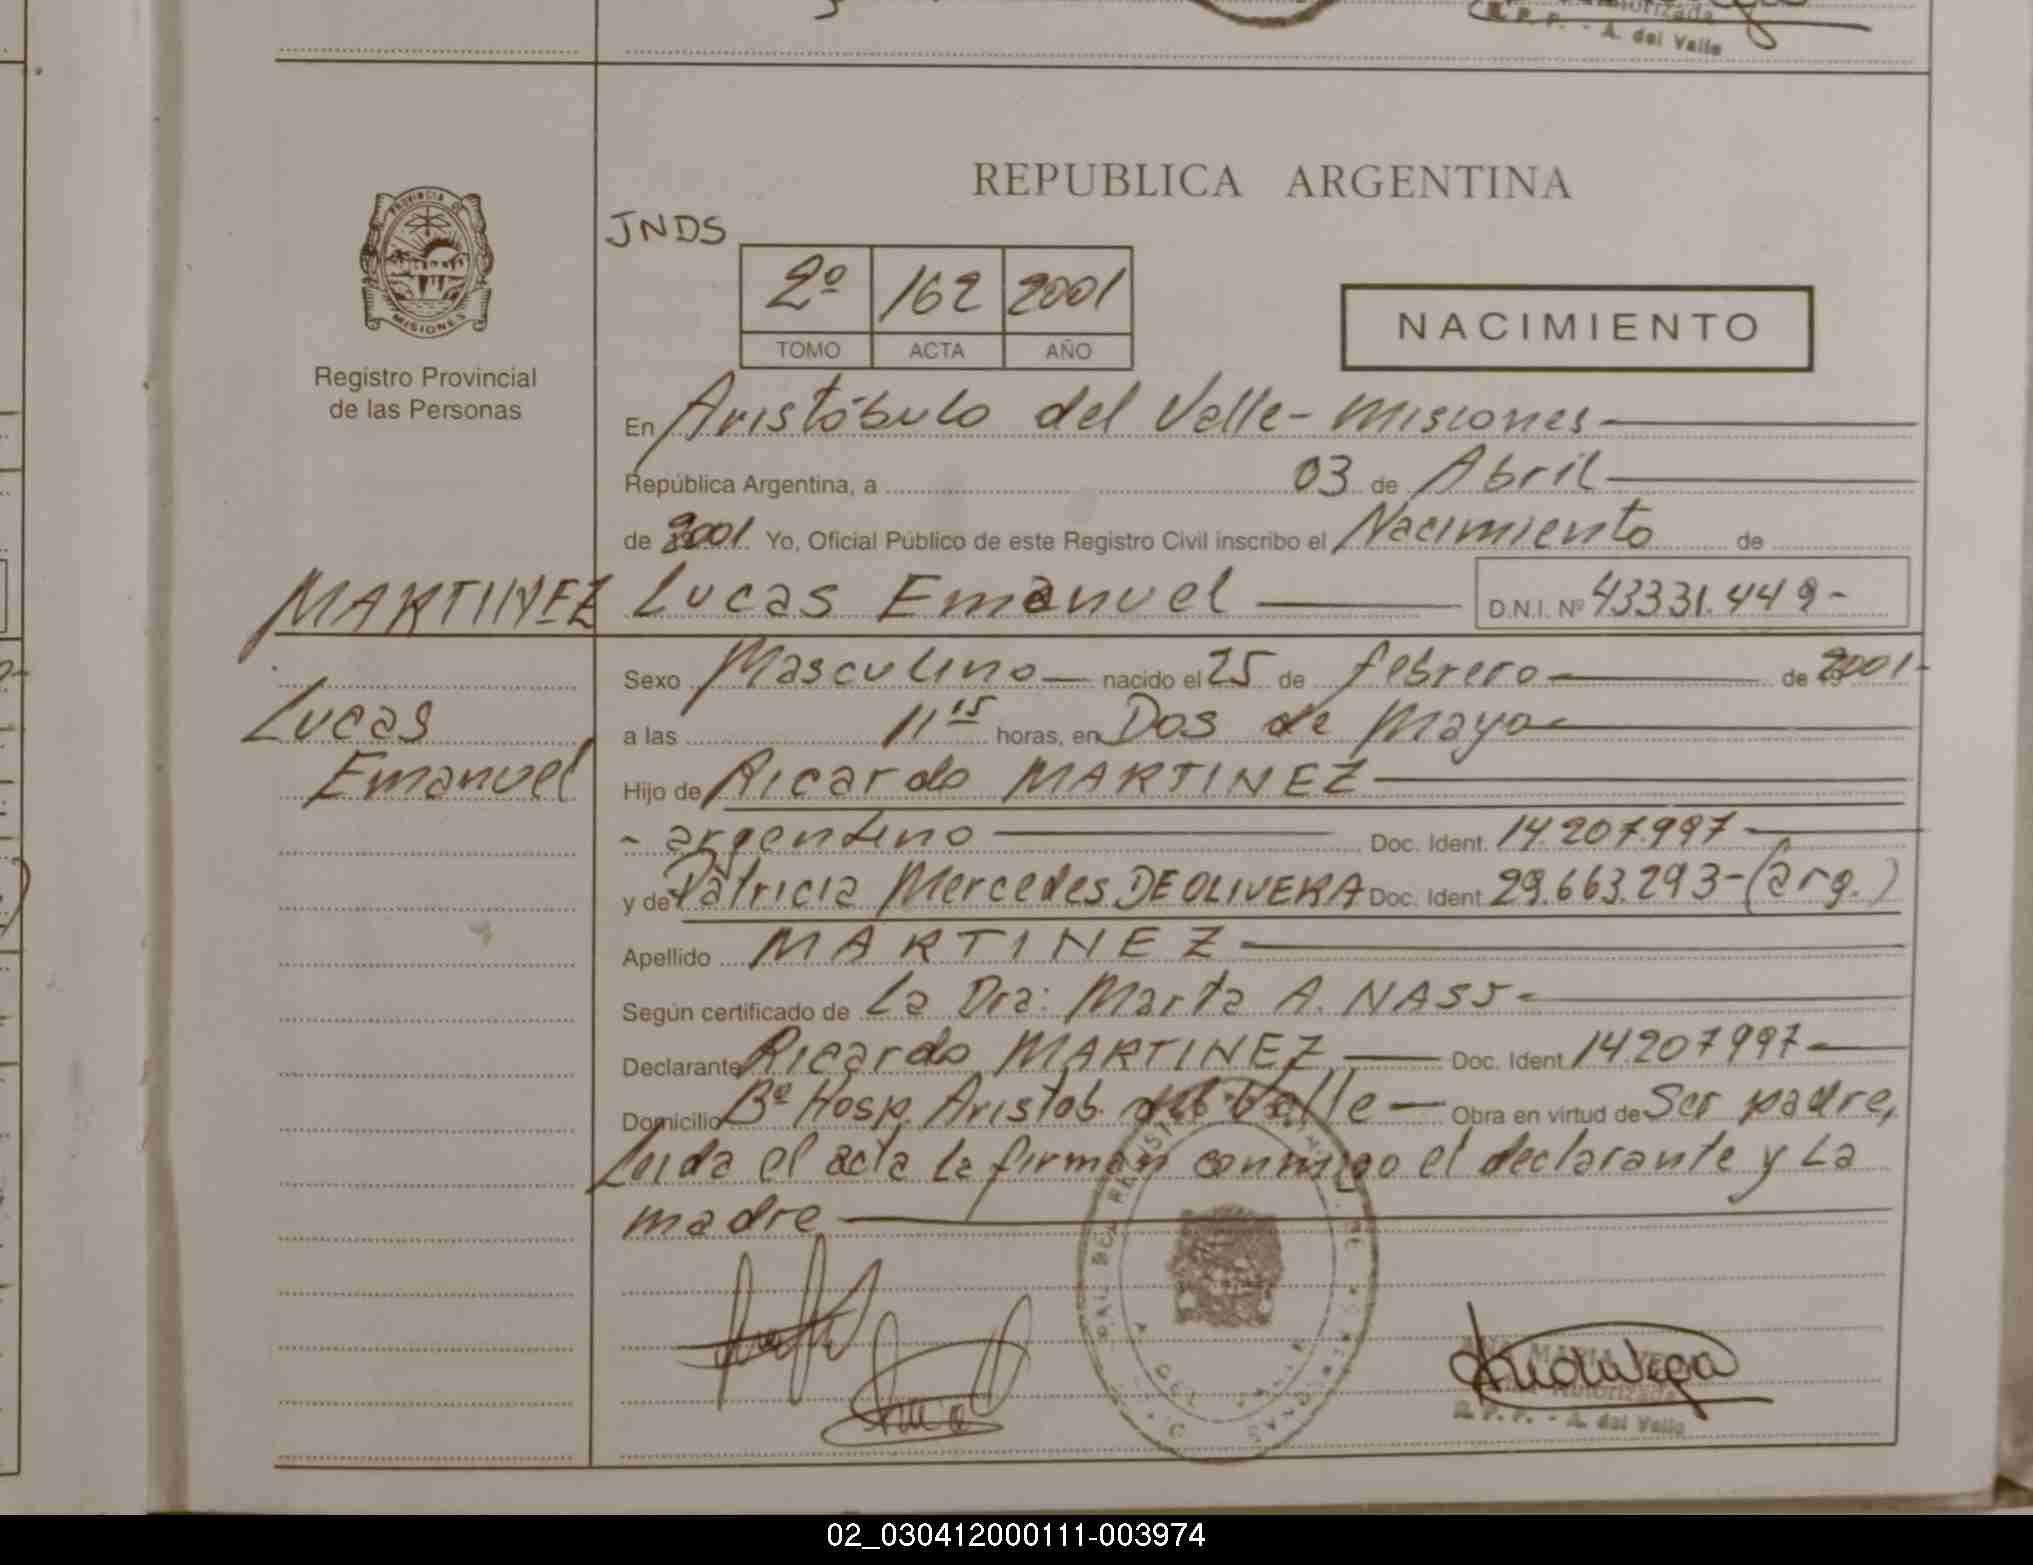 Autorizada
R. P. P. - A. del Valle
REPUBLICA ARGENTINA
PROVINCIA DE
MISIONES
Registro Provincial
de las Personas
JNDS
2º 162 2001
TOMO ACTA AÑO
NACIMIENTO
En Aristóbulo del Valle - Misiones
República Argentina, a 03 de Abril
de 2001 Yo, Oficial Público de este Registro Civil inscribo el Nacimiento de
MARTINEZ Lucas Emanuel D.N.I. Nº 43331.449-
Lucas
Emanuel
Sexo Masculino nacido el 25 de febrero de 2001-
a las 11 15 horas, en Dos de Mayo
Hijo de Ricardo MARTINEZ
- argentino Doc. Ident. 14.207.997-
y de Patricia Mercedes DE OLIVERA Doc. Ident 29.663.293-(arg.)
Apellido MARTINEZ
Según certificado de La Dra: Marta A. NASS-
Declarante Ricardo MARTINEZ Doc. Ident 14207997-
Domicilio Bº Hosp. Aristob. del Valle - Obra en virtud de Ser padre,
Leida el acta la firman conmigo el declarante y La
madre
MARIA
Autorizada
R. P. P. - A. del Valle
02_030412000111-003974